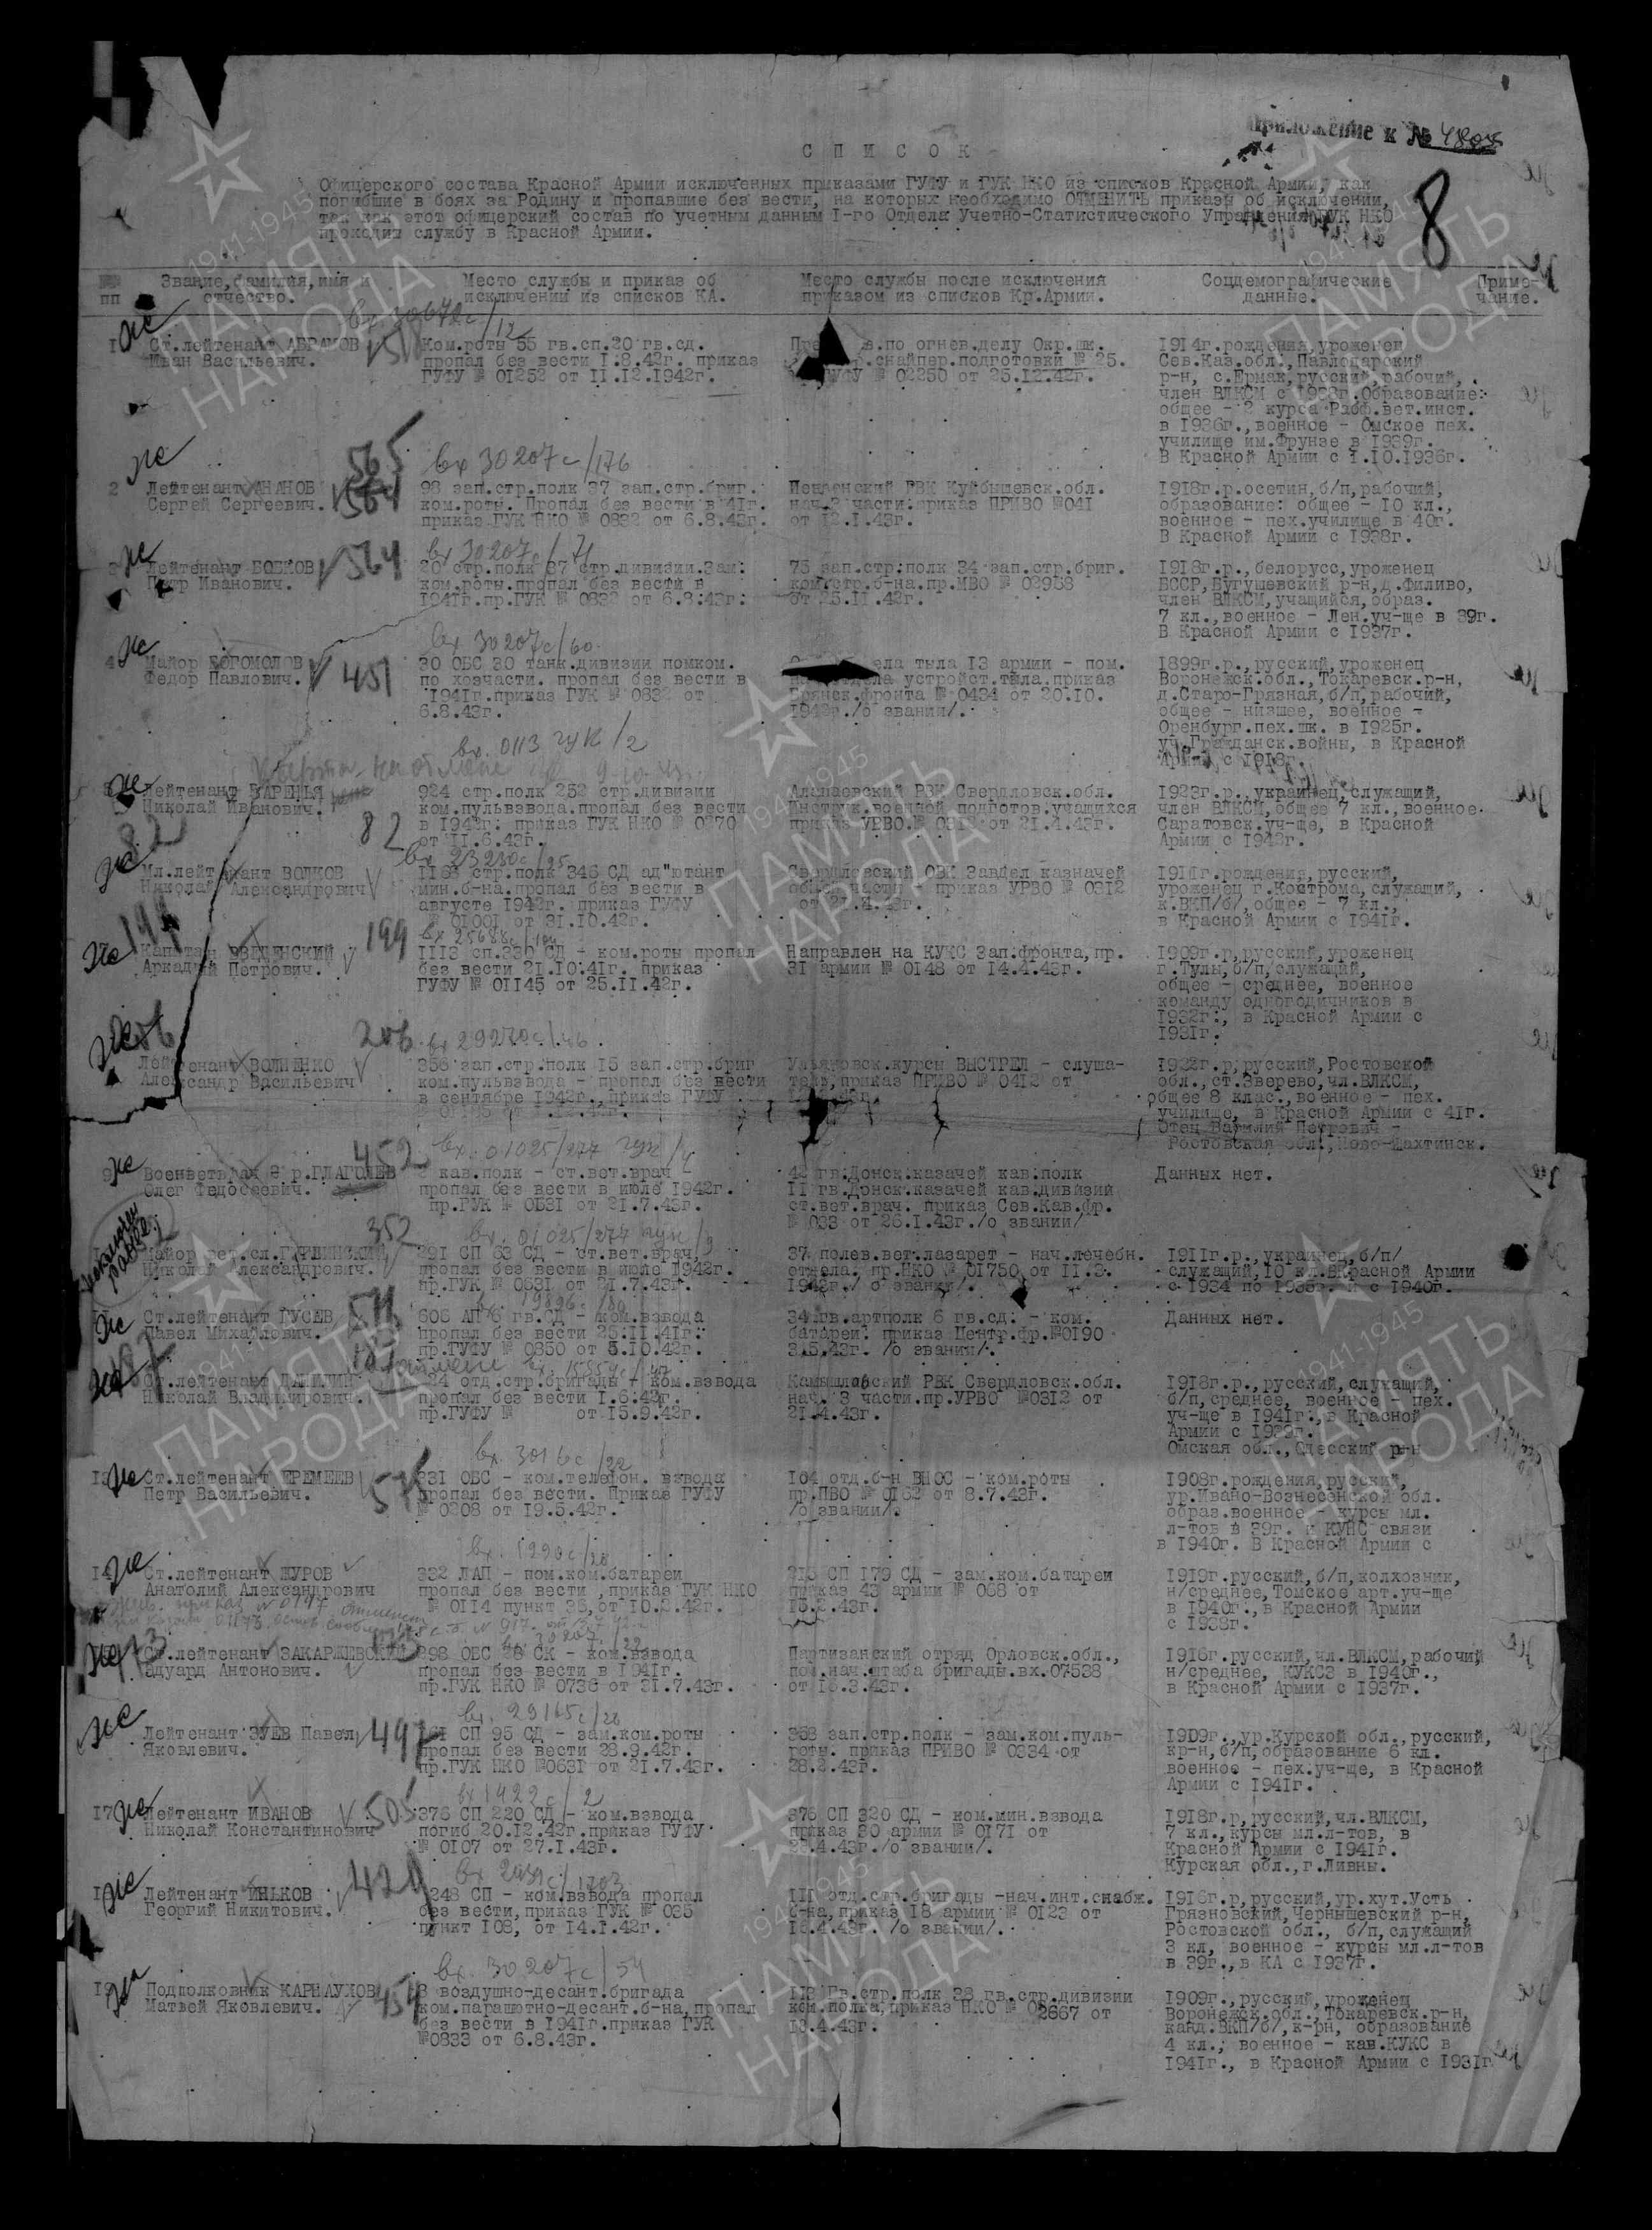 Приложение к №
СПИСОК
8
Офицерского состава Красной Армии исключенных приказами ГУФУ и ГУК НКО из списков Красной Армии, как
погибшие в боях за Родину и пропавшие без вести, на которых необходимо ОТМЕНИТЬ приказы об исключении,
так как этот офицерский состав по учетным данным I-го Отдела Учетно-Статистического Управления ГУК НКО
проходил службу в Красной Армии.
№№ пп
Звание, фамилия, имя и отчество.
Место службы и приказ об исключении из списков КА.
Место службы после исключения приказом из списков Кр.Армии.
Соцдемографические данные.
Приме-чание.
I
Ст.лейтенант АБРАМОВ
Иван Васильевич.
Ком.роты 55 гв.сп.20 гв.сд.
пропал без вести I.8.42г. приказ
ГУФУ № 01252 от II.I2.I942г.
в.по огнев.делу Окр.шк.
снайпер.подготовки № 25.
№ 02250 от 25.I2.42г.
I9I4г.рождения,уроженец
Сев.Каз.обл., Павлодарский
р-н, с.Ермак,русский,рабочий,
член ВЛКСМ с 1938г.Образование:
общее - 2 курса Рабф.вет.инст.
в I936г.,военное - Омское пех.
училище им.Фрунзе в I939г.
В Красной Армии с I.I0.I936г.
565
вх 30207с/176
2
Лейтенант АНАНОВ
Сергей Сергеевич.
564
98 зап.стр.полк 37 зап.стр.бриг.
ком.роты. Пропал без вести в 4Iг.
приказ ГУК НКО № 0832 от 6.8.43г.
РВК Куйбышевск.обл.
нач.3 части.приказ ПРИВО №04I
от I2.I.43г.
I9I8г.р.осетин,б/п,рабочий,
образование: общее - I0 кл.,
военное - пех.училище в 40г.
В Красной Армии с I938г.
вх 30207с/71
3
Лейтенант БОБКОВ
Петр Иванович.
564
стр.полк 37 стр.дивизии.Зам.
ком.роты.пропал без вести в
I94Iг.пр.ГУК № 0832 от 6.8.43г.
75 зап.стр.полк 34 зап.стр.бриг.
ком.стр.б-на.пр.МВО № 02958
от 25.II.42г.
I9I8г.р.,белорусс,уроженец
БССР,Бугушевский р-н,д.Филиво,
член ВЛКСМ,учащийся,образ.
7 кл.,военное - Лен.уч-ще в 39г.
В Красной Армии с I937г.
вх 30207с/60
4
Майор БОГОМОЛОВ
Федор Павлович.
451
30 ОБС 30 танк.дивизии помком.
по хозчасти. пропал без вести в
I94Iг.приказ ГУК № 0832 от
6.8.43г.
тыла I3 армии - пом.
устройст.тыла.приказ
Брянск.фронта № 0434 от 20.I0.
I942г./о звании/.
I899г.р.,русский,уроженец
Воронежск.обл.,Токаревск.р-н,
д.Старо-Грязная,б/п,рабочий,
общее - низшее, военное -
Оренбург.пех.шк. в I925г.
уч.Гражданск.войны, в Красной
Армии с I9I8г.
вх. 0113 ГУК/2
Лейтенант ВАРЕНЬЯ
Николай Иванович.
82
924 стр.полк 252 стр.дивизии
ком.пульвзвода.пропал без вести
в I942г. приказ ГУК НКО № 0270
от II.6.43г.
Алапаевский РВК Свердловск.обл.
Инструк.военной подготов.учащихся
приказ УРВО № 03I2 от 2I.4.43г.
I923г.р.,украинец,служащий,
член ВЛКСМ,общее 7 кл.,военное
Саратовск.уч-ще, в Красной
Армии с I942г.
82
вх 23230с/25
Мл.лейтенант ВОЛКОВ
Николай Александрович
II63 стр.полк 346 СД ад"ютант
мин.б-на.пропал без вести в
августе I942г. приказ ГУФУ
№ 0I00I от 3I.I0.42г.
Свердловский ОВК Завдел казначей
общ. части приказ УРВО № 03I2
от 2I.4.43г.
I9I4г.рождения,русский,
уроженец г.Кострома,служащий,
к.ВКП/б/,общее - 7 кл.,
в Красной Армии с I94Iг.
199
Капитан ВВЕДЕНСКИЙ
Аркадий Петрович.
199
III3 сп.330 СД - ком.роты пропал
без вести 2I.I0.4Iг. приказ
ГУФУ № 0II45 от 25.II.42г.
Направлен на КУКС Зап.фронта,пр.
3I армии № 0I48 от I4.4.43г.
I909г.р,русский,уроженец
г.Тулы,б/п,служащий,
общее - среднее, военное
команду одногодичников в
I932г., в Красной Армии с
I93Iг.
206
вх 29270с/46
Лейтенант ВОЛНЕНКО
Александр Васильевич
356 зап.стр.полк I5 зап.стр.бриг
ком.пульвзвода - пропал без вести
в сентябре I942г.,приказ ГУФУ
Ульяновск.курсы ВЫСТРЕЛ - слуша-
тель,приказ ПРИВО № 04I2 от
I922г.р,русский,Ростовской
обл.,ст.Зверево,чл.ВЛКСМ,
общее 8 клас.,военное - пех.
училище, в Красной Армии с 4Iг.
Отец Василий Петрович -
Ростовская обл.,Ново-Шахтинск.
452
вх. 01025/277 ГУК/4
9
Военветврач 3 р.ГЛАГОЛЕВ
Олег Федосеевич.
кав.полк - ст.вет.врач
пропал без вести в июле I942г.
пр.ГУК № 063I от 2I.7.43г.
42 гв.Донск.казачей кав.полк
II гв.Донск.казачей кав.дивизий
ст.вет.врач. приказ Сев.Кав.фр.
№ 033 от 26.I.43г./о звании/
Данных нет.
исключен ранее
352
вх. 01025/277 ГУК/9
Майор вет.сл.
Николай Александрович.
29I СП 63 СД - ст.вет.врач,
пропал без вести в июле I942г.
пр.ГУК № 063I от 2I.7.43г.
37 полев.вет.лазарет - нач.лечебн.
отдела. пр.НКО № 0I750 от II.3.
I943г./ о звании/.
I9IIг.р.,украинец,б/п/
служащий,I0 кл.ВКрасной Армии
с I934 по I935г. и с I940г.
Ст.лейтенант ГУСЕВ
Павел Михайлович.
606 АП 6 гв.СД - ком.взвода
пропал без вести 25.II.4Iг.
пр.ГУФУ № 0850 от 5.I0.42г.
34 гв.артполк 6 гв.сд. - ком.
батареи. приказ Центр.фр.№0I90
3.5.43г. /о звании/.
Данных нет.
Ст.лейтенант ДАНИЛИН
Николай Владимирович.
I24 отд.стр.бригады - ком.взвода
пропал без вести I.6.42г.
пр.ГУФУ № от I5.9.42г.
Камышловский РВК Свердловск.обл.
нач. 3 части.пр.УРВО №03I2 от
2I.4.43г.
I9I8г.р.,русский,служащий,
б/п,среднее, военное - пех.
уч-ще в I94Iг.,в Красной
Армии с I939г.
Омская обл.,Одесский р-н
вх. 3016с/22
Ст.лейтенант ЕРЕМЕЕВ
Петр Васильевич.
33I ОБС - ком.телефон. взвода
пропал без вести. Приказ ГУФУ
№ 0208 от I9.5.42г.
I04 отд.б-н ВНОС - ком.роты
пр.ПВО № 0I62 от 8.7.43г.
/о звании/.
I908г.рождения,русский,
ур.Ивано-Вознесенской обл.
образ.военное - курсы мл.
л-тов в 39г. и КУНС связи
в I940г. В Красной Армии с
вх. 1290с/28
Ст.лейтенант ЖУРОВ
Анатолий Александрович
332 ЛАП - пом.ком.батареи
пропал без вести ,приказ ГУК НКО
№ 0II4 пункт 35,от I0.2.42г.
2I5 СП I79 СД - зам.ком.батареи
приказ 43 армии № 068 от
I3.2.43г.
I9I9г.русский,б/п,колхозник,
н/среднее,Томское арт.уч-ще
в I940г.,в Красной Армии
с I938г.
Ст.лейтенант ЗАКАРЖЕВСКИЙ
Эдуард Антонович.
298 ОБС 28 СК - ком.взвода
пропал без вести в I94Iг.
пр.ГУК НКО № 0736 от 2I.7.43г.
Партизанский отряд Орловск.обл.,
пом.нач.штаба бригады.вх.07538
от I5.3.43г.
I9I6г.русский,чл.ВЛКСМ,рабочий
н/среднее, КУКСЗ в I940г.,
в Красной Армии с I937г.
вх. 29165с/26
Лейтенант ЗУЕВ Павел
Яковлевич.
497
I6I СП 95 СД - зам.ком.роты
пропал без вести 28.9.42г.
пр.ГУК НКО №063I от 2I.7.43г.
353 зап.стр.полк - зам.ком.пуль-
роты. приказ ПРИВО № 0334 от
28.2.43г.
I909г.,ур.Курской обл.,русский,
кр-н,б/п,образование 6 кл.
военное - пех.уч-ще, в Красной
Армии с I94Iг.
вх 1422с/2
I7
Лейтенант ИВАНОВ
Николай Константинович
505
376 СП 220 СД - ком.взвода
погиб 20.I2.42г.приказ ГУФУ
№ 0I07 от 27.I.43г.
376 СП 220 СД - ком.мин.взвода
приказ 30 армии № 0I7I от
4.43г./о звании/.
I9I8г.р,русский,чл.ВЛКСМ,
7 кл.,курсы мл.л-тов, в
Красной Армии с I94Iг.
Курская обл.,г.Ливны.
Лейтенант ИНЬКОВ
Георгий Никитович.
I248 СП - ком.взвода пропал
без вести,приказ ГУК № 035
пункт I08, от I4.I.42г.
III отд.стр.бригады -нач.инт.снабж.
б-на,приказ I8 армии № 0I23 от
I6.4.43г. /о звании/.
I9I6г.р,русский,ур.хут.Усть
Грязновский,Чернышевский р-н,
Ростовской обл., б/п,служащий
3 кл, военное - курсы мл.л-тов
в 39г.,в КА с I937г.
вх. 30207с/54
Подполковник КАРНАУХОВ
Матвей Яковлевич.
454
8 воздушно-десант.бригада
ком.парашютно-десант.б-на,пропал
без вести в I94Iг.приказ ГУК
№0833 от 6.8.43г.
II3 Гв.стр.полк 38 гв.стр.дивизии
ком.полка,приказ НКО № 02667 от
I3.4.43г.
I909г.,русский,уроженец
Воронежск.обл.,Токаревск.р-н,
канд.ВКП/б/,к-рн, образование
4 кл.; военное - кав.КУКС в
I94Iг., в Красной Армии с I93Iг
1941-1945
ПАМЯТЬ
НАРОДА